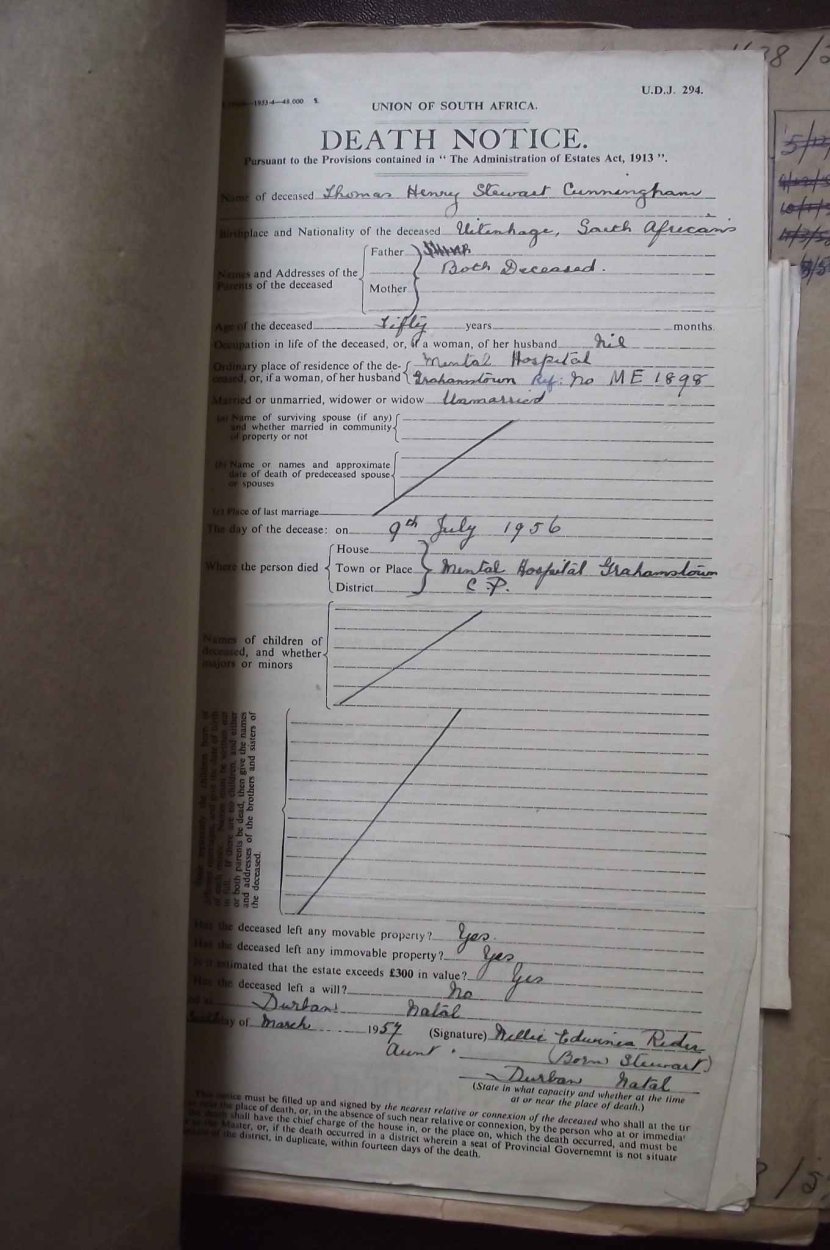 1953-4—48,000 S.
U.D.J. 294.
UNION OF SOUTH AFRICA.
DEATH NOTICE.
Pursuant to the Provisions contained in “ The Administration of Estates Act, 1913 ”.
Name of deceased Thomas Henry Stewart Cunningham
Birthplace and Nationality of the deceased Uitenhage, South African
Names and Addresses of the Parents of the deceased
Father
Both Deceased.
Mother
Age of the deceased Fifty years months.
Occupation in life of the deceased, or, if a woman, of her husband Nil
Ordinary place of residence of the de- Mental Hospital
ceased, or, if a woman, of her husband Grahamstown Ref: No ME 1898
Married or unmarried, widower or widow Unmarried
(a) Name of surviving spouse (if any)
and whether married in community
of property or not
(b) Name or names and approximate
date of death of predeceased spouse
or spouses
(c) Place of last marriage
The day of the decease: on 9th July 1956
House
Where the person died Town or Place Mental Hospital Grahamstown
District C.P.
Names of children of
deceased, and whether
majors or minors
of each
in full. If there are no children, and either
or both parents be dead, then give the names
and addresses of the brothers and sisters of
the deceased.
Has the deceased left any movable property? Yes.
Has the deceased left any immovable property? Yes
Is it estimated that the estate exceeds £300 in value? Yes
Has the deceased left a will? No
Durban Natal
day of March 1957 (Signature) Nellie Edwinea Rider
Aunt. (Born Stewart)
Durban Natal
(State in what capacity and whether at the time
at or near the place of death.)
This notice must be filled up and signed by the nearest relative or connexion of the deceased who shall at the
the place of death, or, in the absence of such near relative or connexion, by the person who at or
shall have the chief charge of the house in, or the place on, which the death occurred, and must be
Master, or, if the death occurred in a district wherein a seat of Provincial Governemnt is not
of the district, in duplicate, within fourteen days of the death.